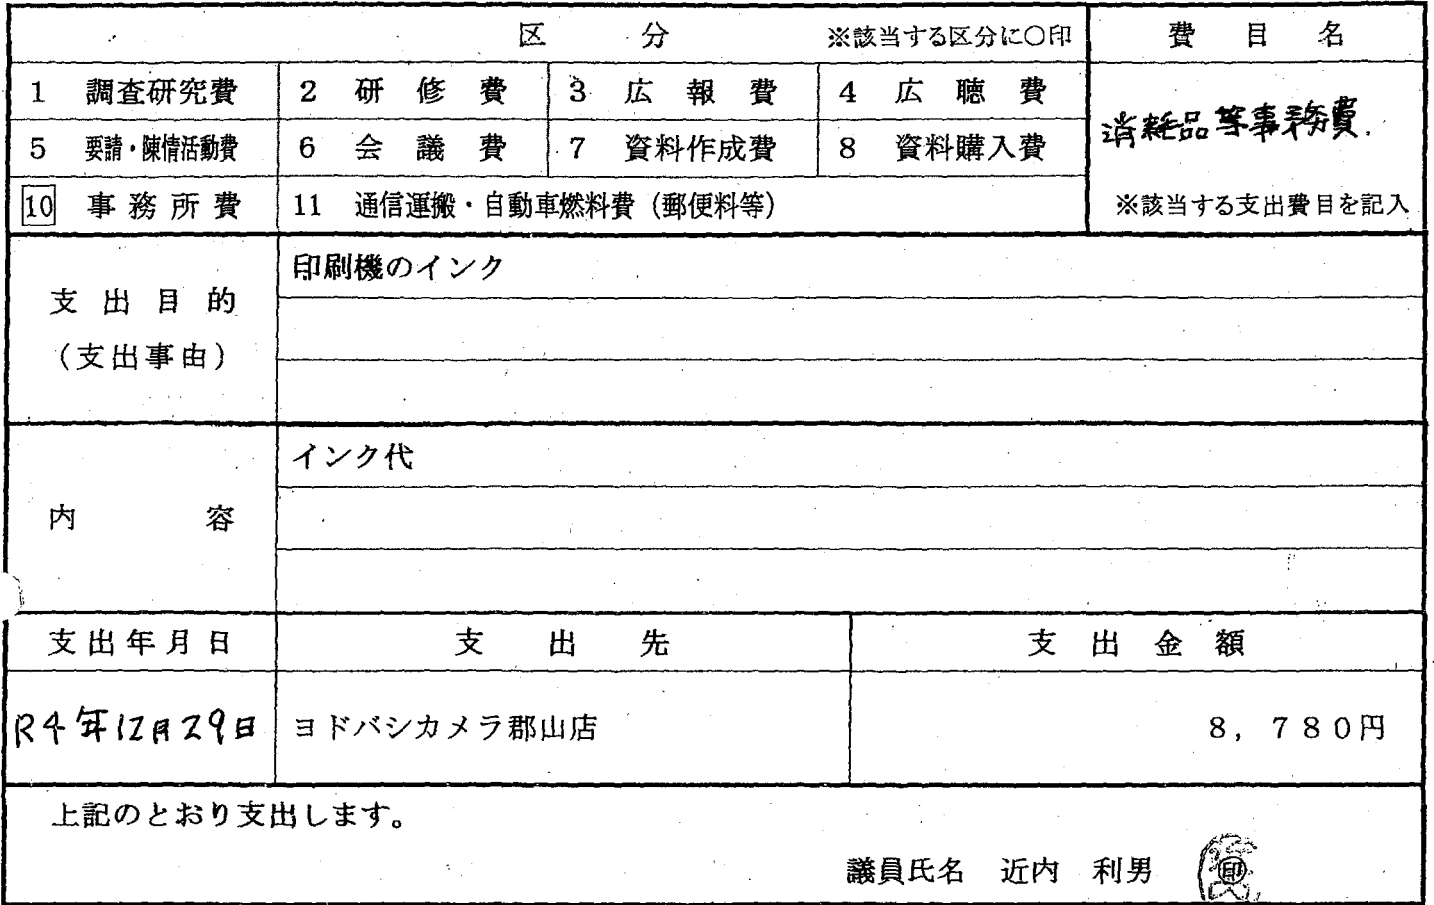 区 分 ※該当する区分に〇印 費 目 名
1 調査研究費 2 研 修 費 3 広 報 費 4 広 聴 費
消耗品等事務費
5 要請・陳情活動費 6 会 議 費 7 資料作成費 8 資料購入費
10 事 務 所 費 11 通信運搬・自動車燃料費（郵便料等） ※該当する支出費目を記入
支 出 目 的
（支出事由）
印刷機のインク
内 容
インク代
支出年月日 支 出 先 支 出 金 額
R4年12月29日 ヨドバシカメラ郡山店 8，780円
上記のとおり支出します。
議員氏名 近内 利男 印